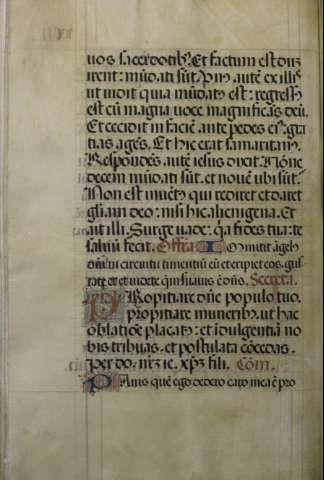 uos sacerdotib᷒. Et factum est dũz
irent: mũdati sũt. Vn᷒ autẽ ex illis
ut uidit quia mũdat᷒ est: regressus
est cũ magna uoce magnificãs deũ.
Et cecidit in faciẽ ante pedes ei᷒ gra
tias agẽs. Et hic erat samaritan᷒.
Respondẽs autẽ iesus dixit. Nõne
decem mũdati sũt. et nouẽ ubi sũt.
Non est inuẽt᷒ qui rediret et daret
gl̃iam deo: nisi hic alienigena. Et
ait illi. Surge uade: q̃a fides tua te
saluũ fecit. Offer̃. Immittit ãgel᷒
dñi in circuitu timentiũ eũ et eripiet eos. gus
tate et uidete qm̃ suauis ẽ dñs. Secreta.
Propitiare dñe populo tuo.
propitiare muneribus. ut hac
oblatiõe placat᷒: et ĩdulgentiã no
bis tribuas. et postulata cõcedas.
per do. nr̃z ie. xp̃z fili. Cõm.
Panis quẽ ego dedero caro mea ẽ pro